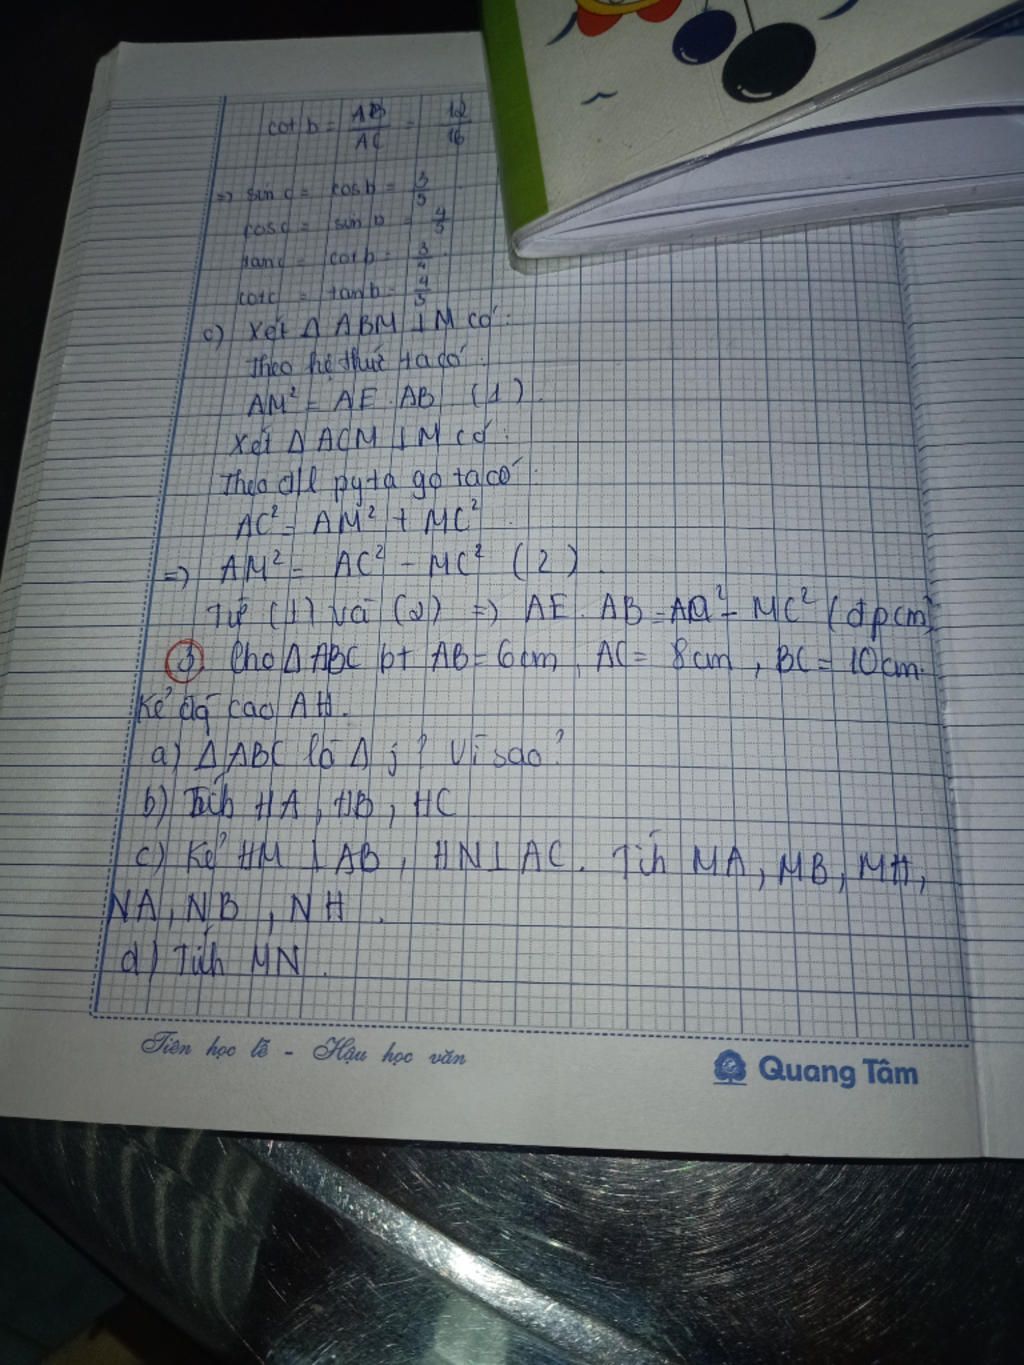 cot b = AB/AC = 12/16
=> sin c = cos b = 3/5
cos c = sin b = 4/5
tan c = cot b = 3/4
cot c = tan b = 4/3
c) Xét Δ ABM ⊥ M có:
Theo hệ thức ta có:
AM² = AE . AB (1).
Xét Δ ACM ⊥ M có:
Theo đ/l pytago ta có:
AC² = AM² + MC²
=> AM² = AC² - MC² (2).
Từ (1) và (2) => AE . AB = AC² - MC² (đpcm)
③ Cho Δ ABC bt AB = 6cm, AC = 8cm, BC = 10cm.
Kẻ đg cao AH.
a) Δ ABC là Δ j? Vì sao?
b) Tính HA, HB, HC
c) Kẻ HM ⊥ AB, HN ⊥ AC. Tính MA, MB, MH,
NA, NB, NH.
d) Tính MN.
Tiên học lễ - Hậu học văn
Quang Tâm